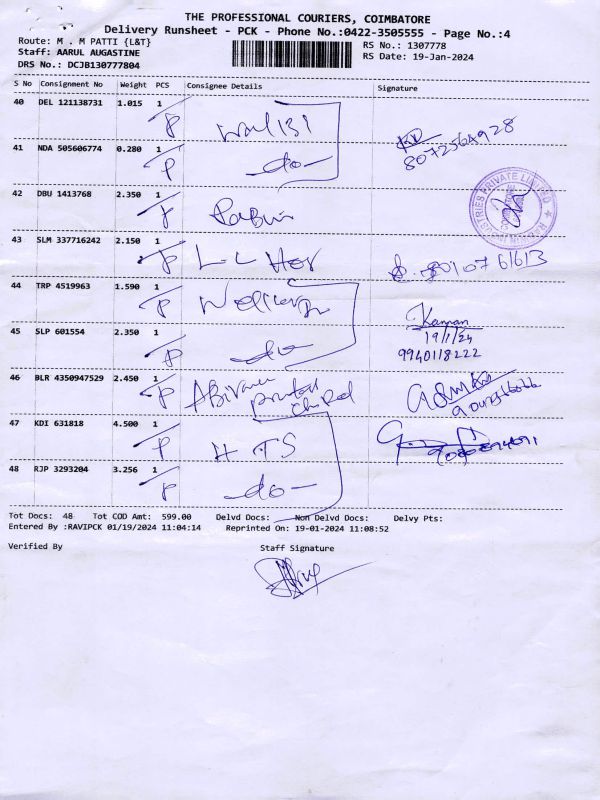 THE PROFESSIONAL COURIERS, COIMBATORE
Delivery Runsheet - PCK - Phone No.:0422-3505555 - Page No.:4
Route: M . M PATTI {L&T}
Staff: AARUL AUGASTINE
DRS No.: DCJB130777804
RS No.: 1307778
RS Date: 19-Jan-2024
S No Consignment No Weight PCS Consignee Details Signature
40 DEL 121138731 1.015 1
P
8072564928
41 NDA 505606774 0.280 1
P -do-
42 DBU 1413768 2.350 1
P
43 SLM 337716242 2.150 1
P
44 TRP 4519963 1.590 1
P
19/1/24
45 SLP 601554 2.350 1
P -do-
9940118222
46 BLR 4350947529 2.450 1
P
47 KDI 631818 4.500 1
P HTS
48 RJP 3293204 3.256 1
P -do-
Tot Docs: 48 Tot COD Amt: 599.00 Delvd Docs: Non Delvd Docs: Delvy Pts:
Entered By :RAVIPCK 01/19/2024 11:04:14 Reprinted On: 19-01-2024 11:08:52
Verified By Staff Signature